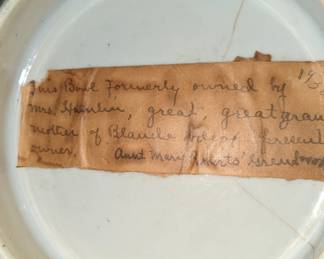 This Bowl Formerly owned by
Mrs. Hamlin, great, great gran
mother of Blanche present
owner. Aunt Mary Roberts' Grandmo